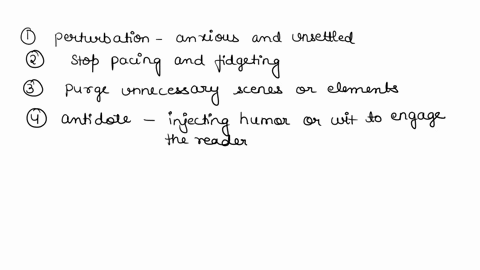 ① perturbation - anxious and unsettled
② stop pacing and fidgeting
③ purge unnecessary scenes or elements
④ antidote - injecting humor or wit to engage
the reader